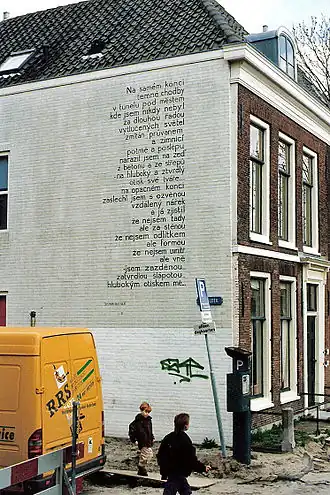 Na samém konci
temné chodby
v tunelu pod městem
kde jsem nikdy nebyl
za dlouhou řadou
vytlučených světel
zmítán průvanem
a zimnicí
potmě a poslepu
narazil jsem na zeď
z betonu a ze střepů
na hluboký a ztvrdlý
otisk své tváře...
na opačném konci
zaslechl jsem s ozvěnou
vzdálený nářek
a já zjistil
že nejsem tady
ale za stěnou
že nejsem odlitkem
ale formou
že nejsem uvnitř
ale vně
jsem zazděnou,
zatvrdlou šlápotou
hlubokým otiskem mě...
P
P
RRS